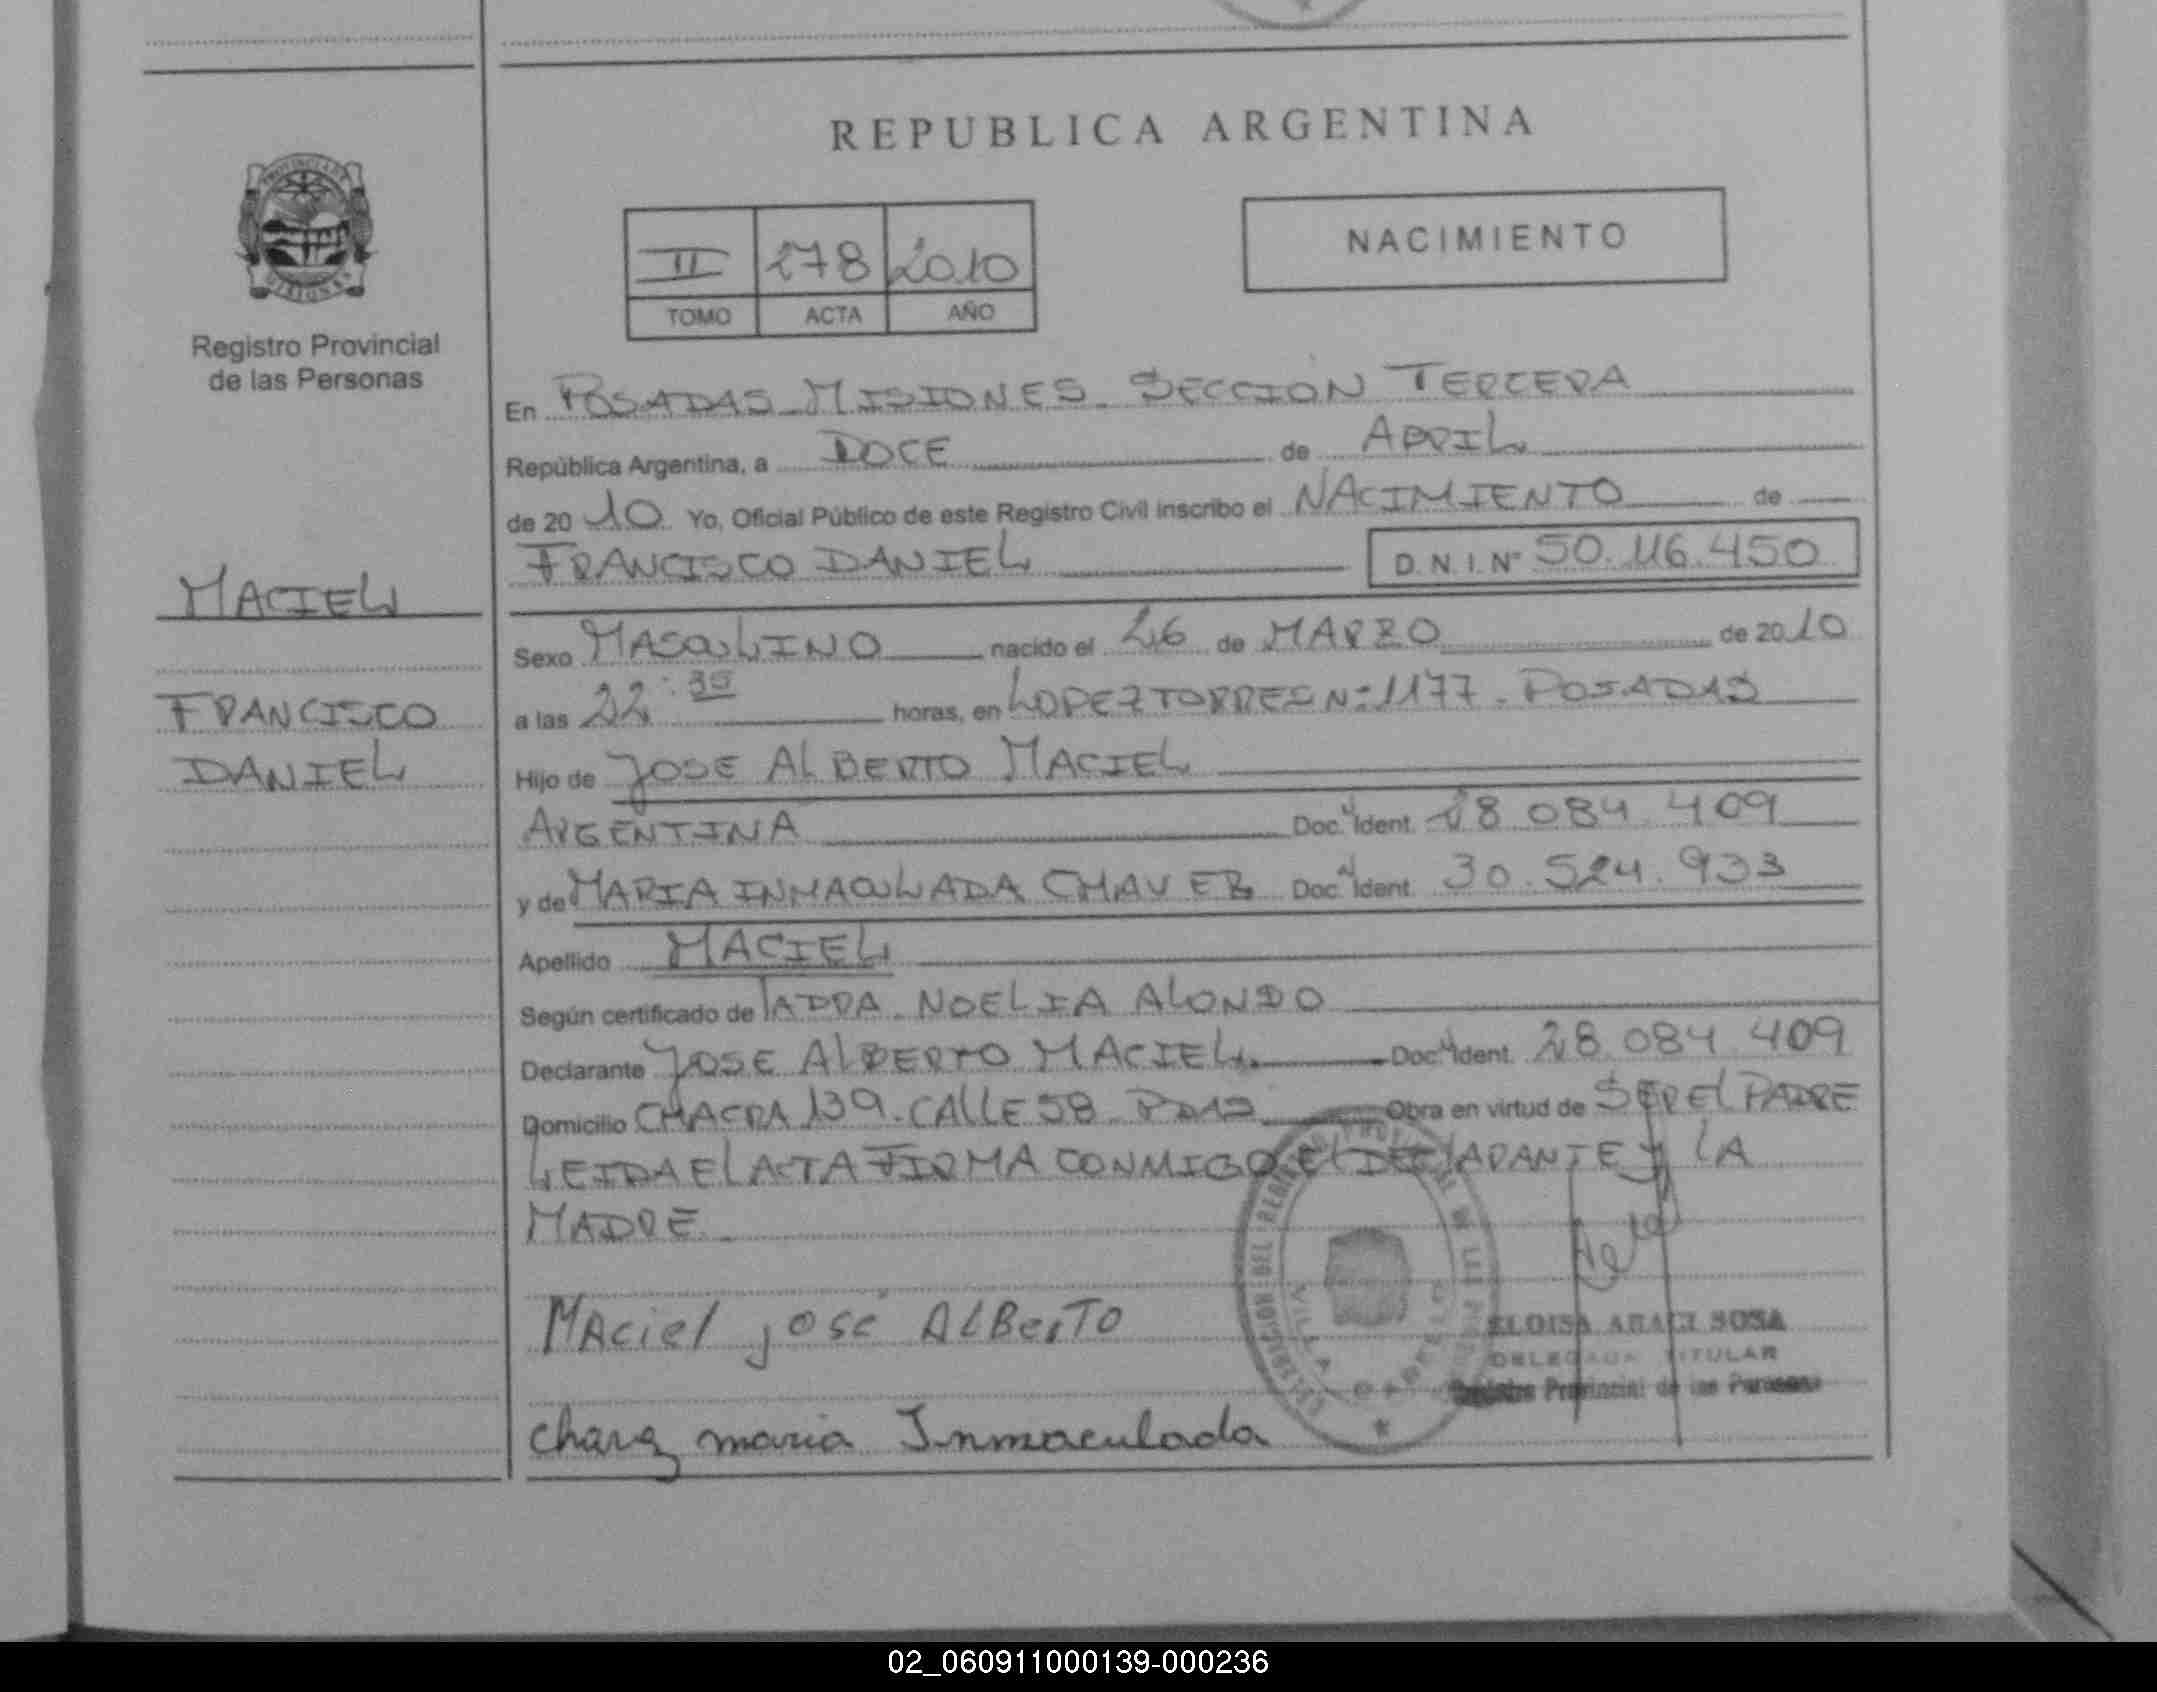 REPUBLICA ARGENTINA
NACIMIENTO
II 278 2010
TOMO ACTA AÑO
Registro Provincial
de las Personas
En POSADAS MISIONES. SECCION TERCERA
República Argentina, a DOCE de ABRIL
de 2010 Yo, Oficial Público de este Registro Civil inscribo el NACIMIENTO de
FRANCISCO DANIEL D.N.I.Nº 50.116.450
MACIEL
Sexo MASCULINO nacido el 26 de MARZO de 2010
FRANCISCO
a las 22:30 horas, en LOPEZ TORRES Nº 1177. POSADAS
DANIEL
Hijo de JOSE ALBERTO MACIEL
ARGENTINA Doc. Ident. 28.084.409
y de MARIA INMACULADA CHAVEZ Doc. Ident. 30.524.933
Apellido MACIEL
Según certificado de NOELIA
Declarante JOSE ALBERTO MACIEL. Doc. Ident. 28.084.409
Domicilio CHACRA 139. CALLE 58 PDAS Obra en virtud de SER EL PADRE
LEIDA EL ACTA FIRMA CONMIGO EL DECLARANTE Y LA
MADRE.
Maciel José Alberto
ELOISA ARACI SOSA
DELEGADA TITULAR
Registro Provincial de las Personas
Chavez maria Inmaculada
02_060911000139-000236